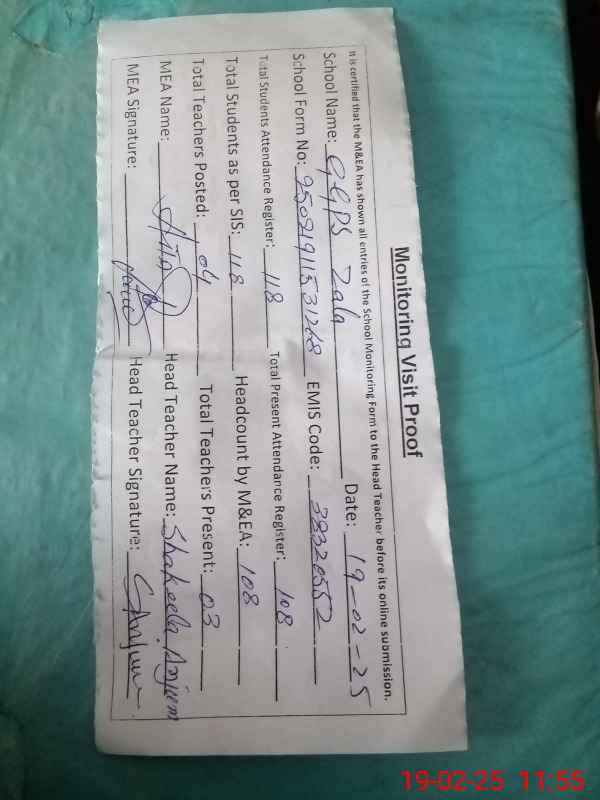 Monitoring Visit Proof
It is certified that the M&EA has shown all entries of the School Monitoring Form to the Head Teacher before its online submission.
School Name: GGPS Zala Date: 19-02-25
School Form No: 25021911531268 EMIS Code: 38320552
Total Students Attendance Register: 118 Total Present Attendance Register: 108
Total Students as per SIS: 118 Headcount by M&EA: 108
Total Teachers Posted: 04 Total Teachers Present: 03
MEA Name: Head Teacher Name: Shakeela Anjum
MEA Signature: Head Teacher Signature: SAnjum
19-02-25 11:55